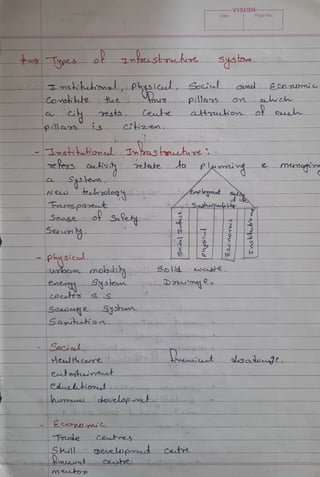 VISION
Date
Page No.
Types of Infrastructure System.
Institutional, Physical, Social and Economic
Constitute the four pillars on which
a city rests. Centre attraction of each
pillars is citizen.
- Institutional Infrastructure:
refers activity relate to planning & managing
a system.
New technology
Transparent
Sense of Safety
Security.
Employment
Sustainability
Social Infrast
Physical
Economic
Institutional
- Physical
urban mobility Solid waste.
energy System Drainage.
water S.S.
Sewage System
Sanitation.
- Social
Healthcare
entertainment
educational
human development.
- Economic
Trade centres
Skill development centre
financial centre
mentor